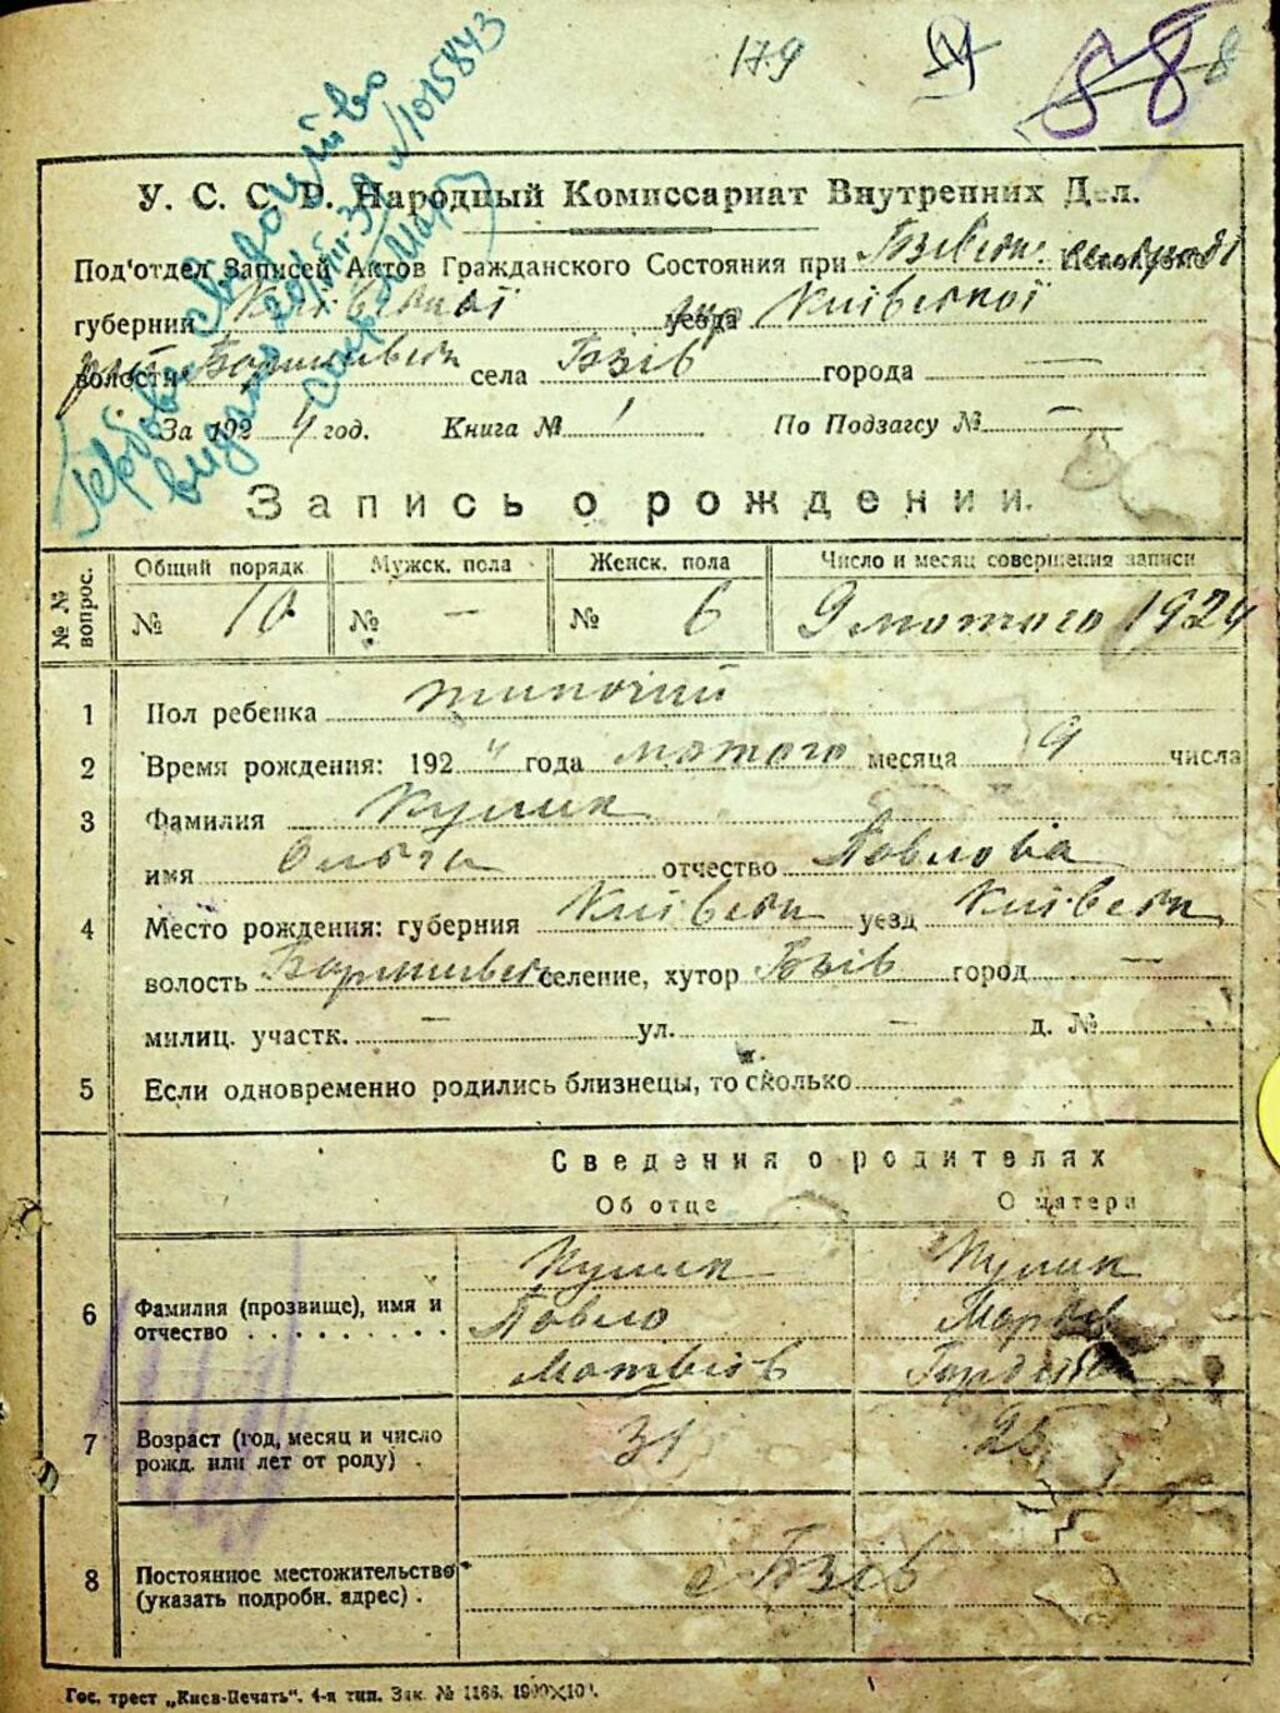 179
58 8
Гербове свидоцтво
видано 20/VIII-39 №1015843
У. С. С. Р. Народный Комиссариат Внутренних Дел.
Под'отдел Записей Актов Гражданского Состояния при Бзівськ.
губерний Київської уезда Київської
волости Баришівськ села Бзів города —
За 1924 год. Книга № 1 По Подзагсу № —
Запись о рождении.
№ № вопрос. Общий порядк Мужск. пола Женск. пола Число и месяц совершения записи
№ 10 № — № 6 9 лютого 1924
1 Пол ребенка жиночий
2 Время рождения: 1924 года лютого месяца 9 числа
3 Фамилия Кулик
имя Ольга отчество Павлова
4 Место рождения: губерния Київськ уезд Київськ
волость Баришівськ селение, хутор Бзів город —
милиц. участк. — ул. — д. №
5 Если одновременно родились близнецы, то сколько
Сведения о родителях
Об отце О матери
Кулик Кулик
6 Фамилия (прозвище), имя и отчество Павло
Матвіїв
7 Возраст (год, месяц и число рожд. или лет от роду) 31 25
8 Постоянное местожительство (указать подробн. адрес) с Бзів
Гос. трест „Киев-Печать". 4-я тип. Зак. № 1166.